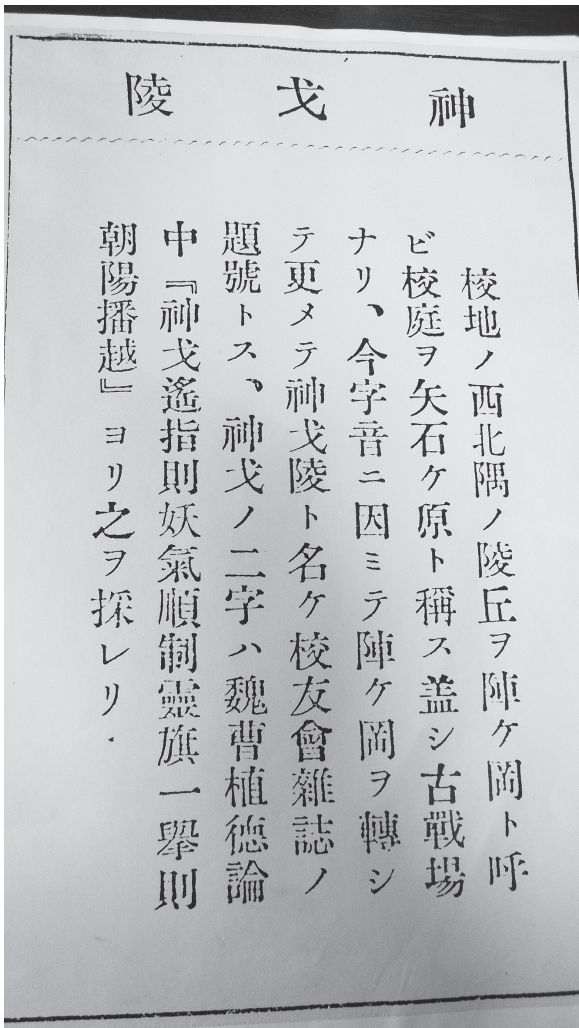 神戈陵
校地ノ西北隅ノ陵丘ヲ陣ケ岡ト呼
ビ校庭ヲ矢石ケ原ト稱ス盖シ古戰場
ナリ、今字音ニ因ミテ陣ケ岡ヲ轉シ
テ更メテ神戈陵ト名ケ校友會雜誌ノ
題號トス、神戈ノ二字ハ魏曹植徳論
中『神戈遙指則妖氣順制靈旗一擧則
朝陽播越』ヨリ之ヲ採レリ.